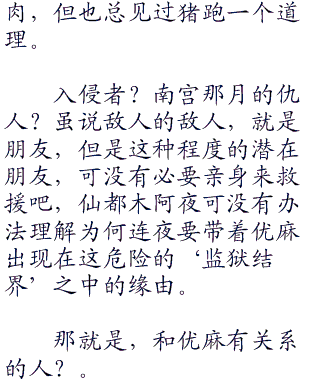 肉，但也总见过猪跑一个道
理。
入侵者？南宫那月的仇
人？虽说敌人的敌人，就是
朋友，但是这种程度的潜在
朋友，可没有必要亲身来救
援吧，仙都木阿夜可没有办
法理解为何连夜要带着优麻
出现在这危险的‘监狱结
界’之中的缘由。
那就是，和优麻有关系
的人？。